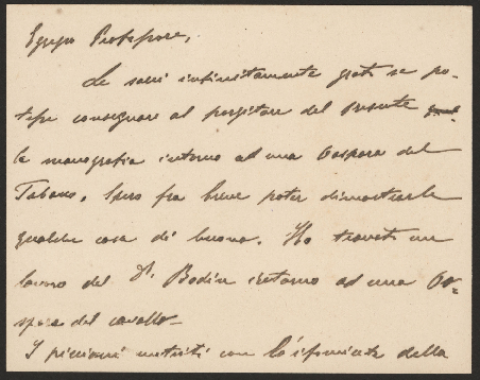 Egregio Professore,
Le sarei infinitamente grato se po-
tesse consegnare al porgitore del presente
la monografia intorno ad una Gaspora del
Tabano. Spero fra breve poter dimostrarle
qualche cosa di buono. Ho trovato un
lavoro del Dr. Bodin intorno ad una
del cavallo.
I piccioni nutriti con della